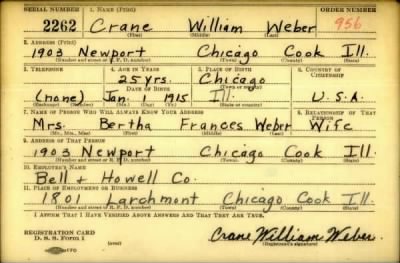 SERIAL NUMBER 1. NAME (Print) ORDER NUMBER
2262 Crane William Weber 956
(First) (Middle) (Last)
2. ADDRESS (Print)
1903 Newport Chicago Cook Ill.
(Number and street or R. F. D. number) (Town) (County) (State)
3. TELEPHONE 4. AGE IN YEARS 5. PLACE OF BIRTH 6. COUNTRY OF CITIZENSHIP
25 yrs. Chicago
DATE OF BIRTH (Town or county)
(none) Jan. 1915 Ill. U.S.A.
(Exchange) (Number) (Mo.) (Day) (Yr.) (State or country)
7. NAME OF PERSON WHO WILL ALWAYS KNOW YOUR ADDRESS 8. RELATIONSHIP OF THAT PERSON
Mrs. Bertha Frances Weber Wife
(Mr., Mrs., Miss) (First) (Middle) (Last)
9. ADDRESS OF THAT PERSON
1903 Newport Chicago Cook Ill.
(Number and street or R. F. D. number) (Town) (County) (State)
10. EMPLOYER'S NAME
Bell & Howell Co.
11. PLACE OF EMPLOYMENT OR BUSINESS
1801 Larchmont Chicago Cook Ill.
(Number and street or R. F. D. number) (Town) (County) (State)
I AFFIRM THAT I HAVE VERIFIED ABOVE ANSWERS AND THAT THEY ARE TRUE.
REGISTRATION CARD
D. S. S. Form 1 (over) Crane William Weber
(Registrant's signature)